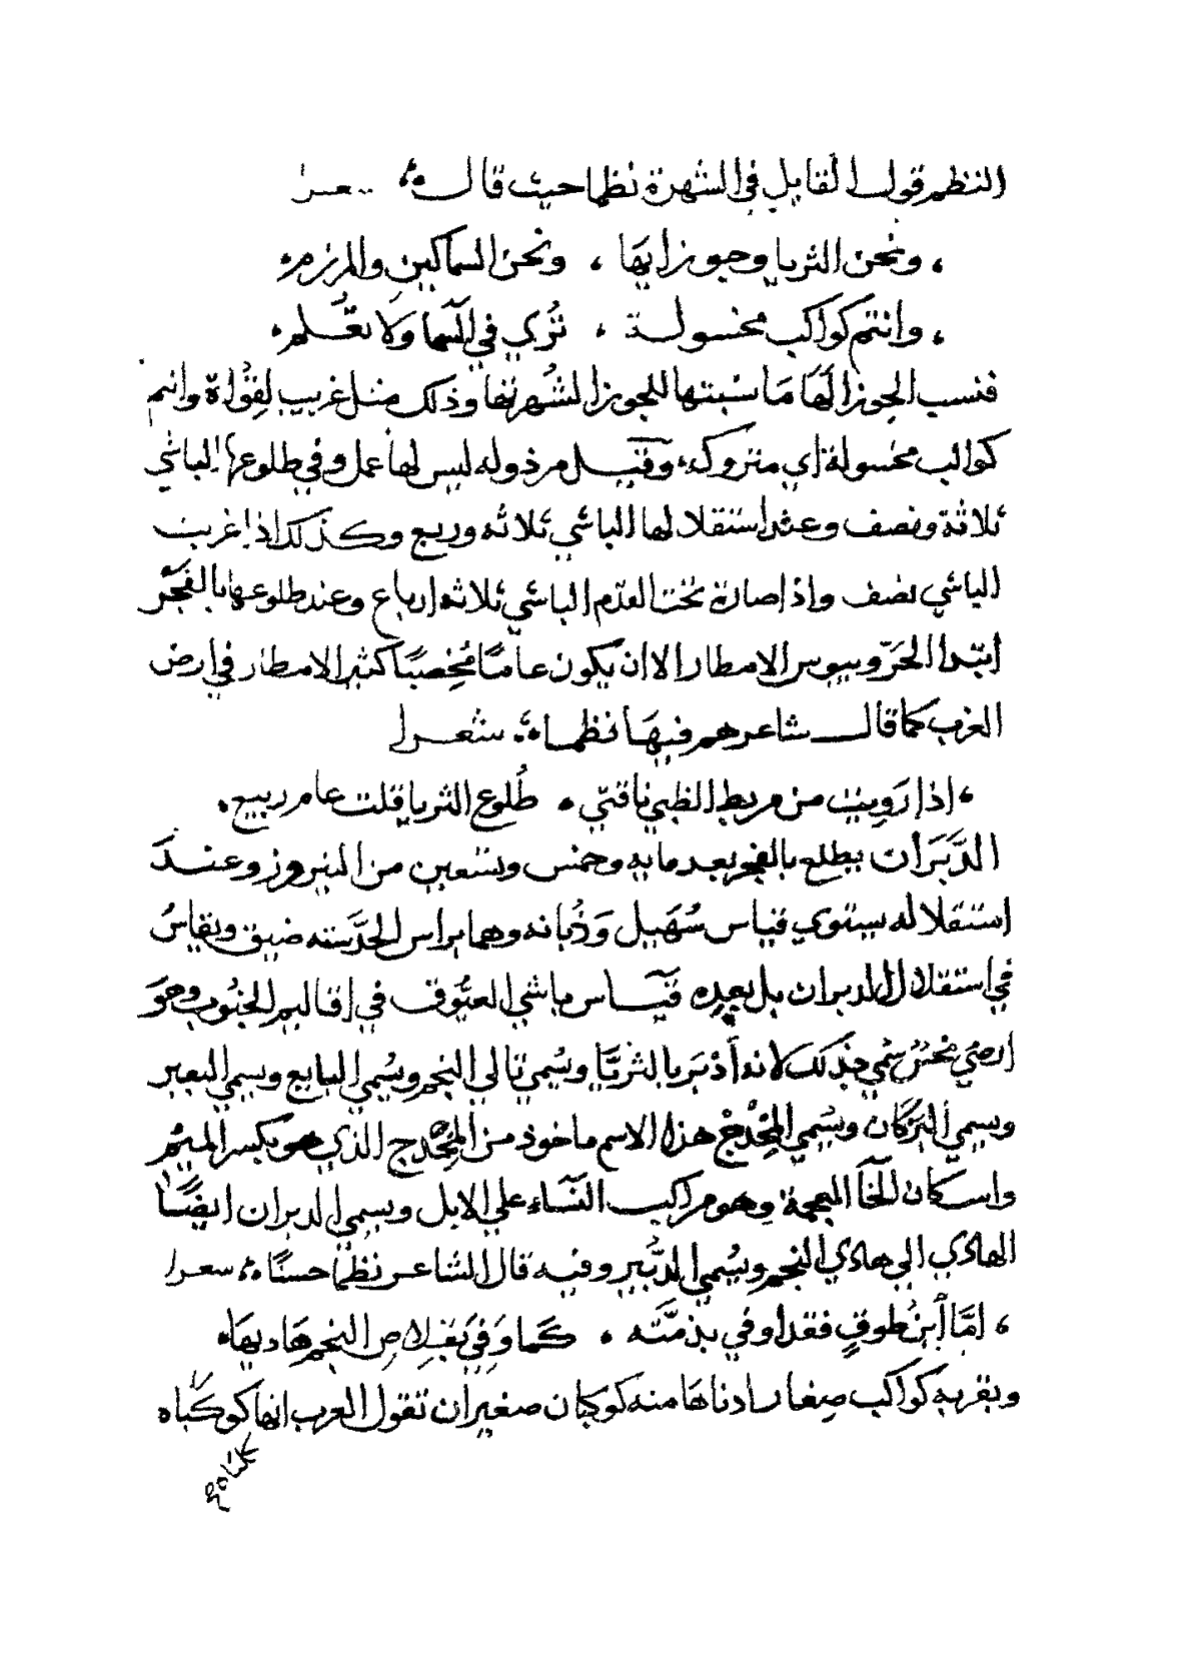 النظم قول القايل في الشهرة نظما حيث قال شعرا
ونحن الثريا وجوزايها ، ونحن السماكين والمرزم
وانتم كواكب مخسولة ، تُري في السما ولا تعلم
فنسب الجوزا لها ما نسبتها للجوزا لشهرتها وذلك مثل غريب لقوله وانتم
كواكب مخسولة اي متروكه وقيل مرذوله ليس لها عمل وفي طلوعها الباشي
ثلاثة ونصف وعند استقلالها الباشي ثلاثه وربع وكذلك اذا غربت
الباشي نصف واذا صارة تحت القدم الباشي ثلاثه ارباع وعند طلوعها بالفجر
ابتدا الحرّ ويبوس الامطار الا ان يكون عامًا مُخصبًا كثير الامطار في ارض
العرب كما قال شاعرهم فيها نظما شعرا
اذا رَوِيت من مربط الظبي ناقتي ، طُلوع الثريا قلت عام ربيع
الدَّبَرَان يطلع بالفجر بعد مايه وخمس وتسعين من النيروز وعند
استقلاله يستوي قياس سُهَيل وَذُبانه وهما براس الحَدَّسته ضيق ويقاسُ
في استقلال الدبران بل بعده قياس باشي العيُّوق في اقاليم الجنُوب وهو
ايضي نحس سُمي بذلك لانه أدْبَر بالثريَّا وسُمي تالي النجم وسُمي التابع وسمي البعير
وسمي البَرَكان وسُمي المِخْدج هذا الاسم ماخوذ من المِخْدج الذي هو بكسر الميم
واسكان الخآ المعجمة وهو مراكب النسَاء علي الابل وسمي الدبران ايضًا
الهادي الي هادي النجم وسُمي الدُّبير وفيه قال الشاعر نظما حسنًا شعرا
امَّا ابن طوقٍ فقد اوفي بذمَّته ، كما وَفي بقِلاص النجم هَاديها
وبقربه كواكب صغار ادناها منه كوكبان صغيران تقول العرب انها كَلباه